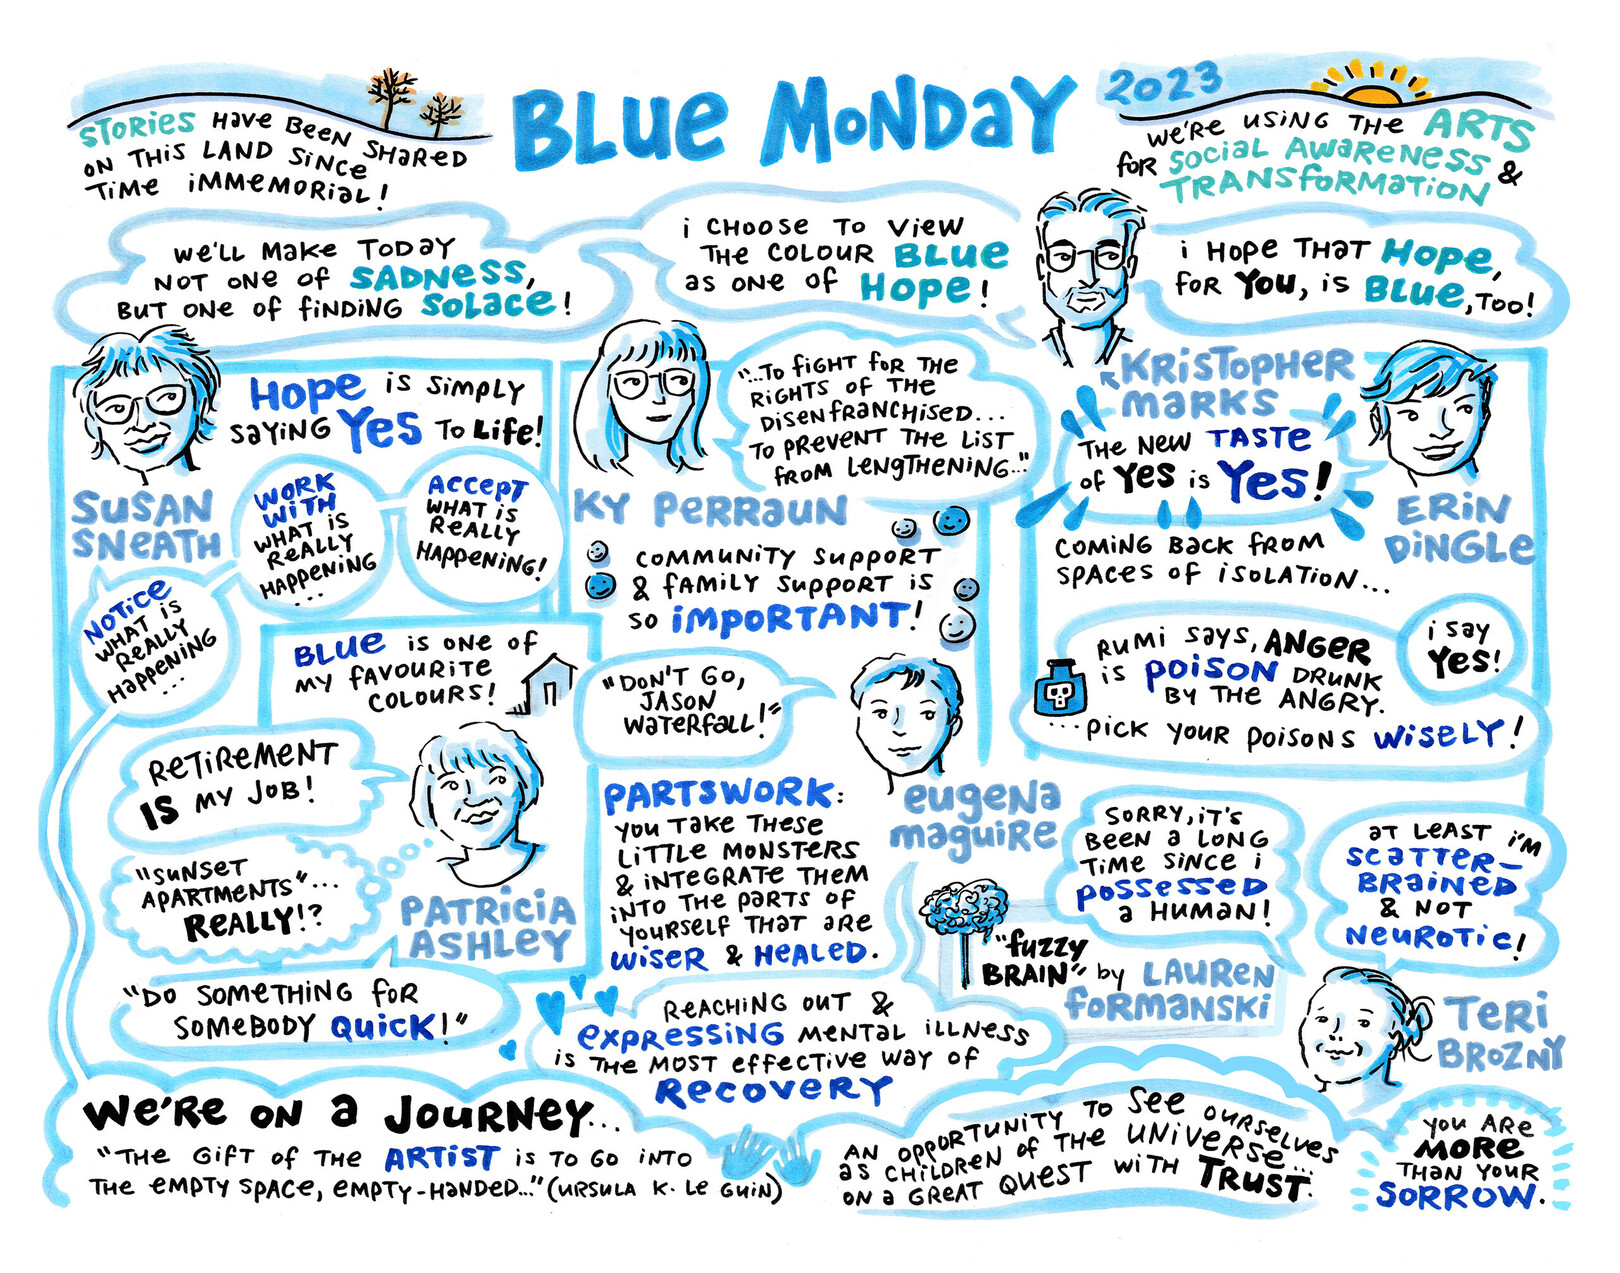 BLUE MONDAY
2023
STORIES HAVE BEEN SHARED
ON THIS LAND SINCE
TIME IMMEMORIAL!
WE'RE USING THE ARTS
FOR SOCIAL AWARENESS &
TRANSFORMATION
WE'LL MAKE TODAY
NOT ONE OF SADNESS,
BUT ONE OF FINDING SOLACE!
I CHOOSE TO VIEW
THE COLOUR BLUE
AS ONE OF HOPE!
I HOPE THAT HOPE,
FOR YOU, IS BLUE, TOO!
KRISTOPHER
MARKS
HOPE IS SIMPLY
SAYING YES TO LIFE!
SUSAN
SNEATH
NOTICE
WHAT IS
REALLY
HAPPENING
...
WORK
WITH
WHAT IS
REALLY
HAPPENING
...
ACCEPT
WHAT IS
REALLY
HAPPENING!
"...TO FIGHT FOR THE
RIGHTS OF THE
DISENFRANCHISED...
TO PREVENT THE LIST
FROM LENGTHENING..."
KY PERRAUN
COMMUNITY SUPPORT
& FAMILY SUPPORT IS
SO IMPORTANT!
THE NEW TASTE
OF YES IS YES!
ERIN
DINGLE
COMING BACK FROM
SPACES OF ISOLATION...
RUMI SAYS, ANGER
IS POISON DRUNK
BY THE ANGRY.
...PICK YOUR POISONS WISELY!
I SAY
YES!
BLUE IS ONE OF
MY FAVOURITE
COLOURS!
RETIREMENT
IS MY JOB!
"SUNSET
APARTMENTS"...
REALLY!?
PATRICIA
ASHLEY
"DO SOMETHING FOR
SOMEBODY QUICK!"
"DON'T GO,
JASON
WATERFALL!"
EUGENA
MAGUIRE
PARTSWORK:
YOU TAKE THESE
LITTLE MONSTERS
& INTEGRATE THEM
INTO THE PARTS OF
YOURSELF THAT ARE
WISER & HEALED.
REACHING OUT &
EXPRESSING MENTAL ILLNESS
IS THE MOST EFFECTIVE WAY OF
RECOVERY
"FUZZY
BRAIN" BY LAUREN
FORMANSKI
SORRY, IT'S
BEEN A LONG
TIME SINCE I
POSSESSED
A HUMAN!
AT LEAST I'M
SCATTER-
BRAINED
& NOT
NEUROTIC!
TERI
BROZNY
WE'RE ON A JOURNEY...
"THE GIFT OF THE ARTIST IS TO GO INTO
THE EMPTY SPACE, EMPTY-HANDED..." (URSULA K. LE GUIN)
AN OPPORTUNITY TO SEE OURSELVES
AS CHILDREN OF THE UNIVERSE...
ON A GREAT QUEST WITH TRUST.
YOU ARE
MORE
THAN YOUR
SORROW.